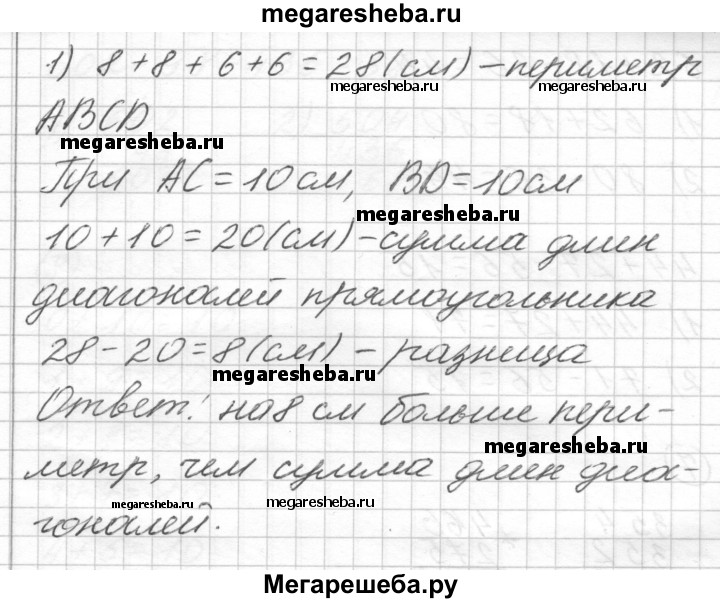 megaresheba.ru
1) 8+8+6+6=28(см) – периметр
megaresheba.ru megaresheba.ru
ABCD
megaresheba.ru
При AC=10см, BD=10см
megaresheba.ru
10+10=20(см) – сумма длин
диагоналей прямоугольника
28-20=8(см) – разница
megaresheba.ru
Ответ: на 8 см больше пери-
megaresheba.ru
метр, чем сумма длин диа-
megaresheba.ru megaresheba.ru
гоналей.
Мегарешеба.ру